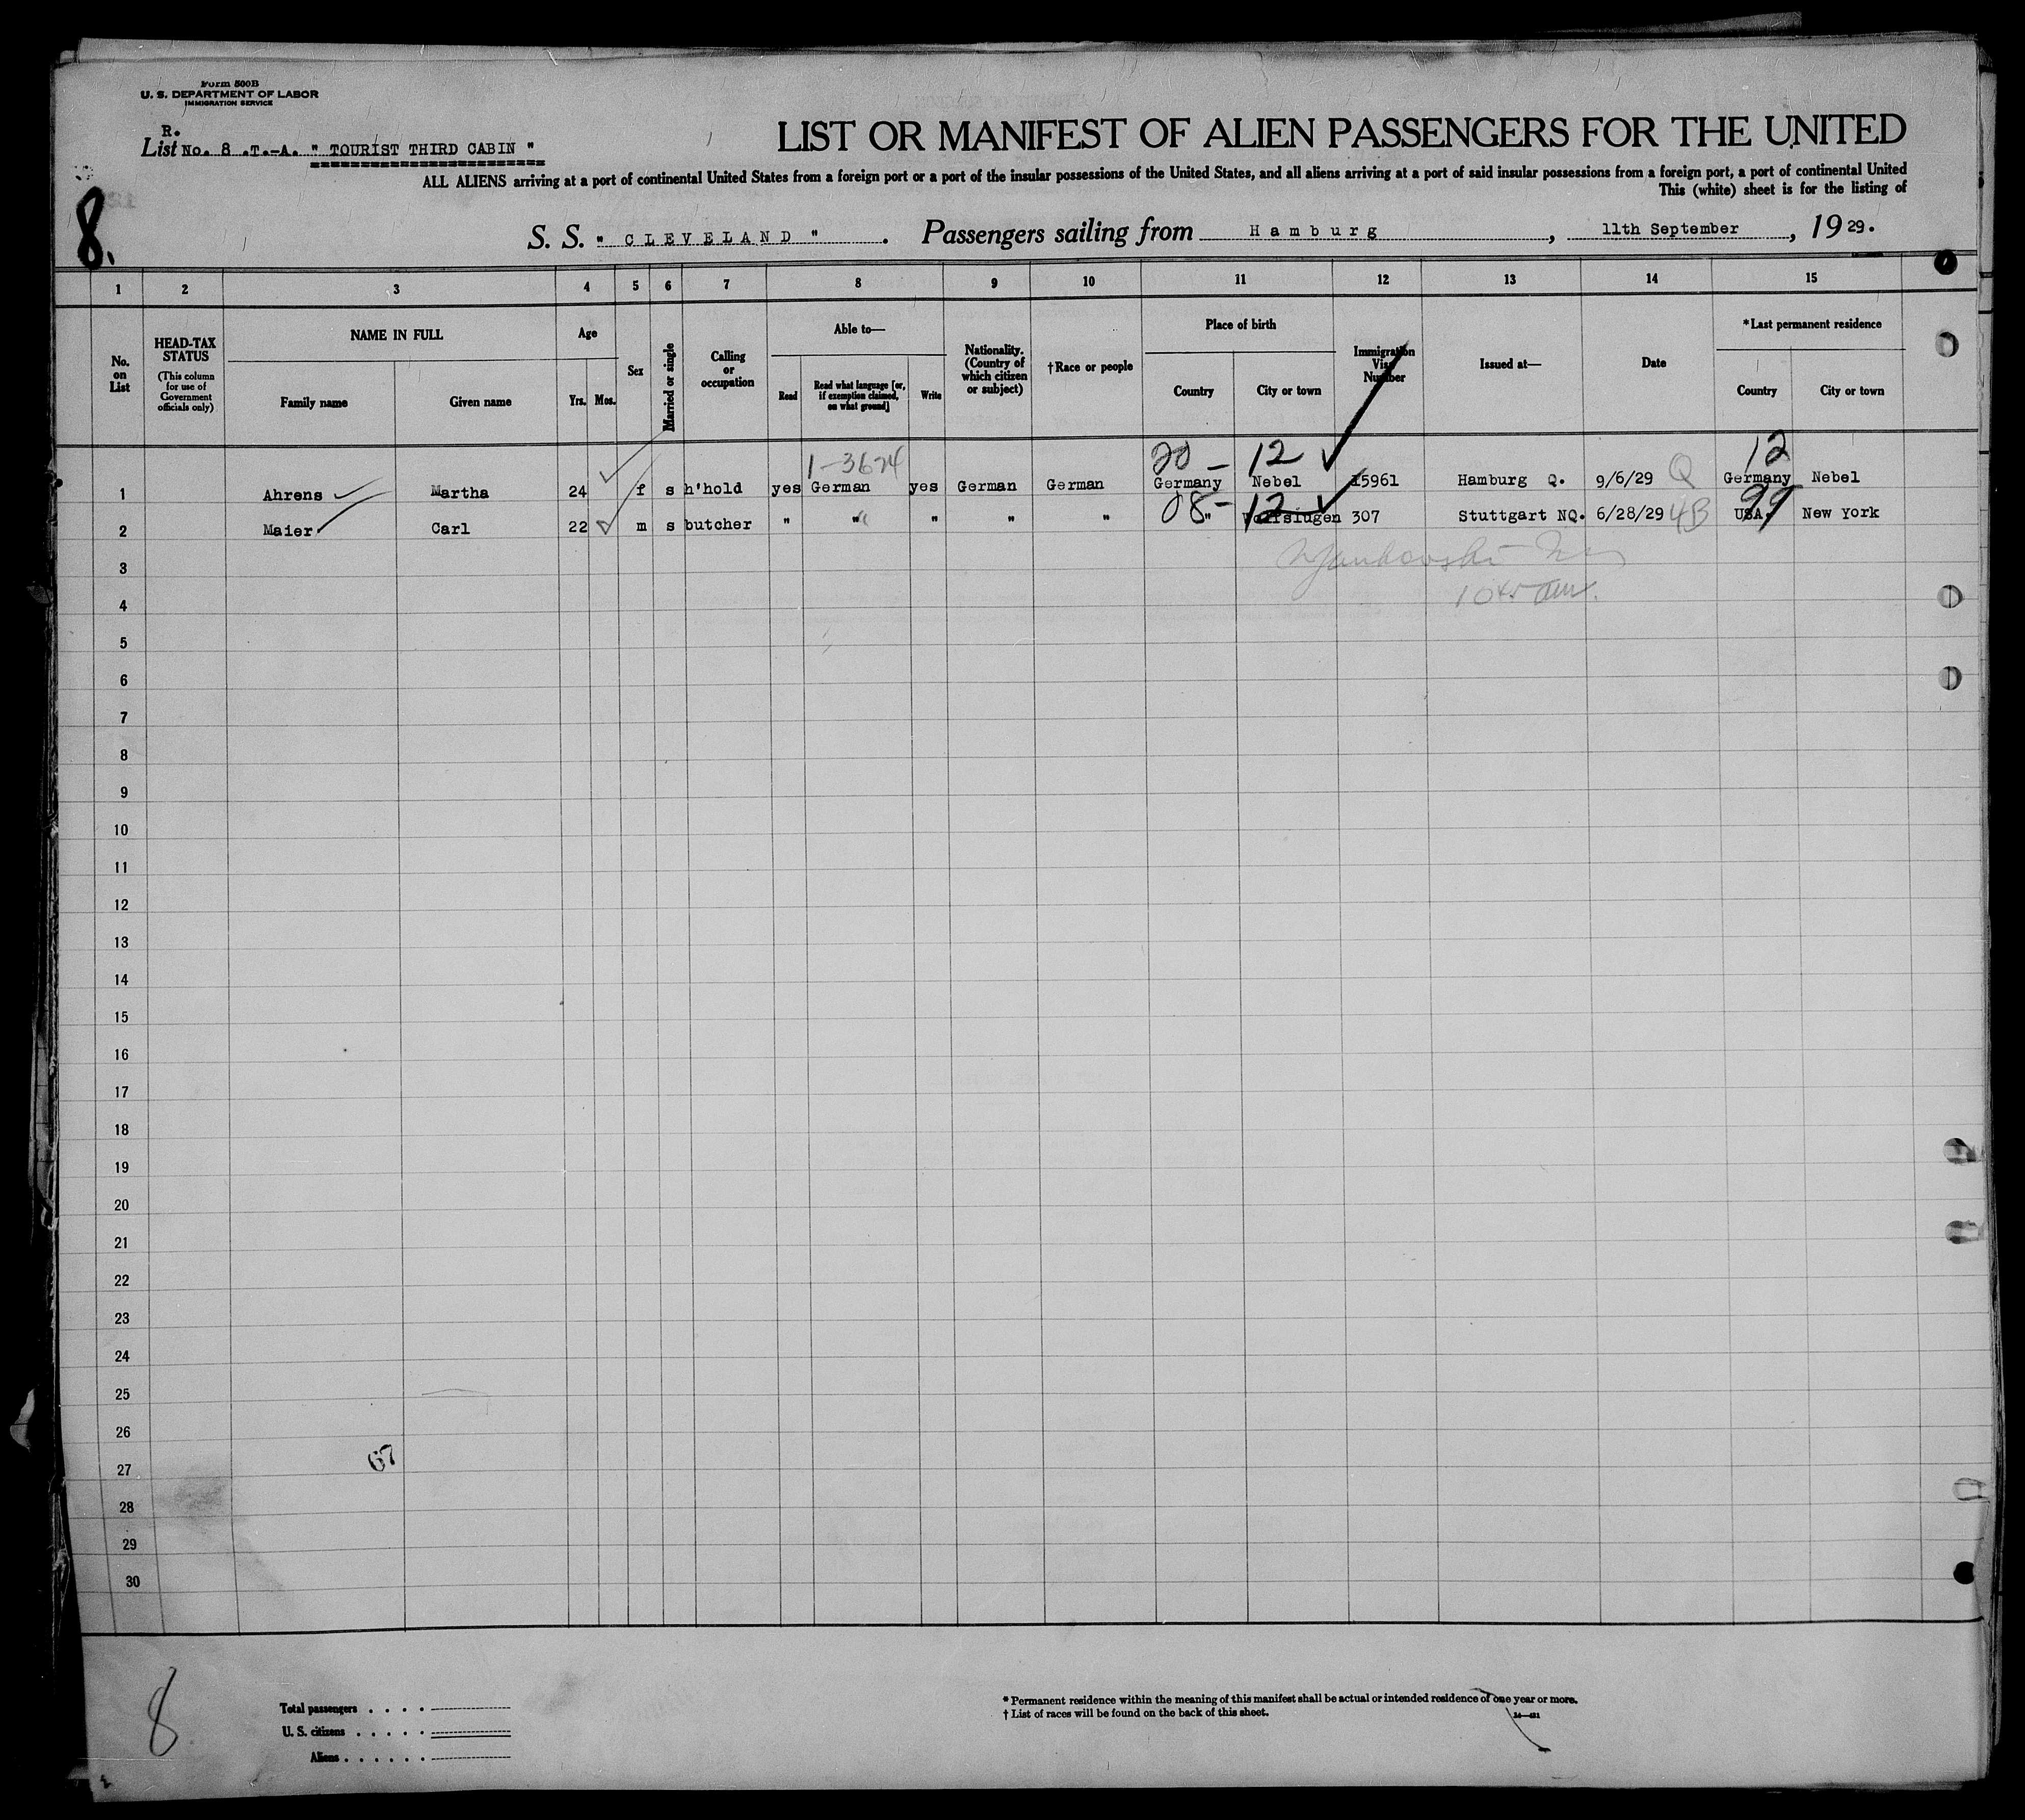 Form 500B
U. S. DEPARTMENT OF LABOR
IMMIGRATION SERVICE
R.
List No. 8 .T.-A. " TOURIST THIRD CABIN "
8.
LIST OR MANIFEST OF ALIEN PASSENGERS FOR THE UNITED
ALL ALIENS arriving at a port of continental United States from a foreign port or a port of the insular possessions of the United States, and all aliens arriving at a port of said insular possessions from a foreign port, a port of continental United
This (white) sheet is for the listing of
S. S. " CLEVELAND ". Passengers sailing from Hamburg, 11th September, 1929.
1 2 3 4 5 6 7 8 9 10 11 12 13 14 15
No. on List
HEAD-TAX STATUS (This column for use of Government officials only)
NAME IN FULL Family name Given name
Age Yrs. Mos.
Sex
Married or single
Calling or occupation
Able to— Read Read what language [or, if exemption claimed, on what ground] Write
Nationality. (Country of which citizen or subject)
†Race or people
Place of birth Country City or town
Immigration Visa Number
Issued at—
Date
*Last permanent residence Country City or town
1-3674 20 - 12 12
1 Ahrens Martha 24 f s h'hold yes German yes German German Germany Nebel 15961 Hamburg Q. 9/6/29 Q Germany Nebel
08 - 12 99
2 Maier Carl 22 m s butcher " " " " " " 307 Stuttgart NQ. 6/28/29 4B USA. New York
3
4 1045 am.
5
6
7
8
9
10
11
12
13
14
15
16
17
18
19
20
21
22
23
24
25
26
27 67
28
29
30
8
Total passengers . . . .
U. S. citizens . . . . .
Aliens . . . . . .
* Permanent residence within the meaning of this manifest shall be actual or intended residence of one year or more.
† List of races will be found on the back of this sheet.